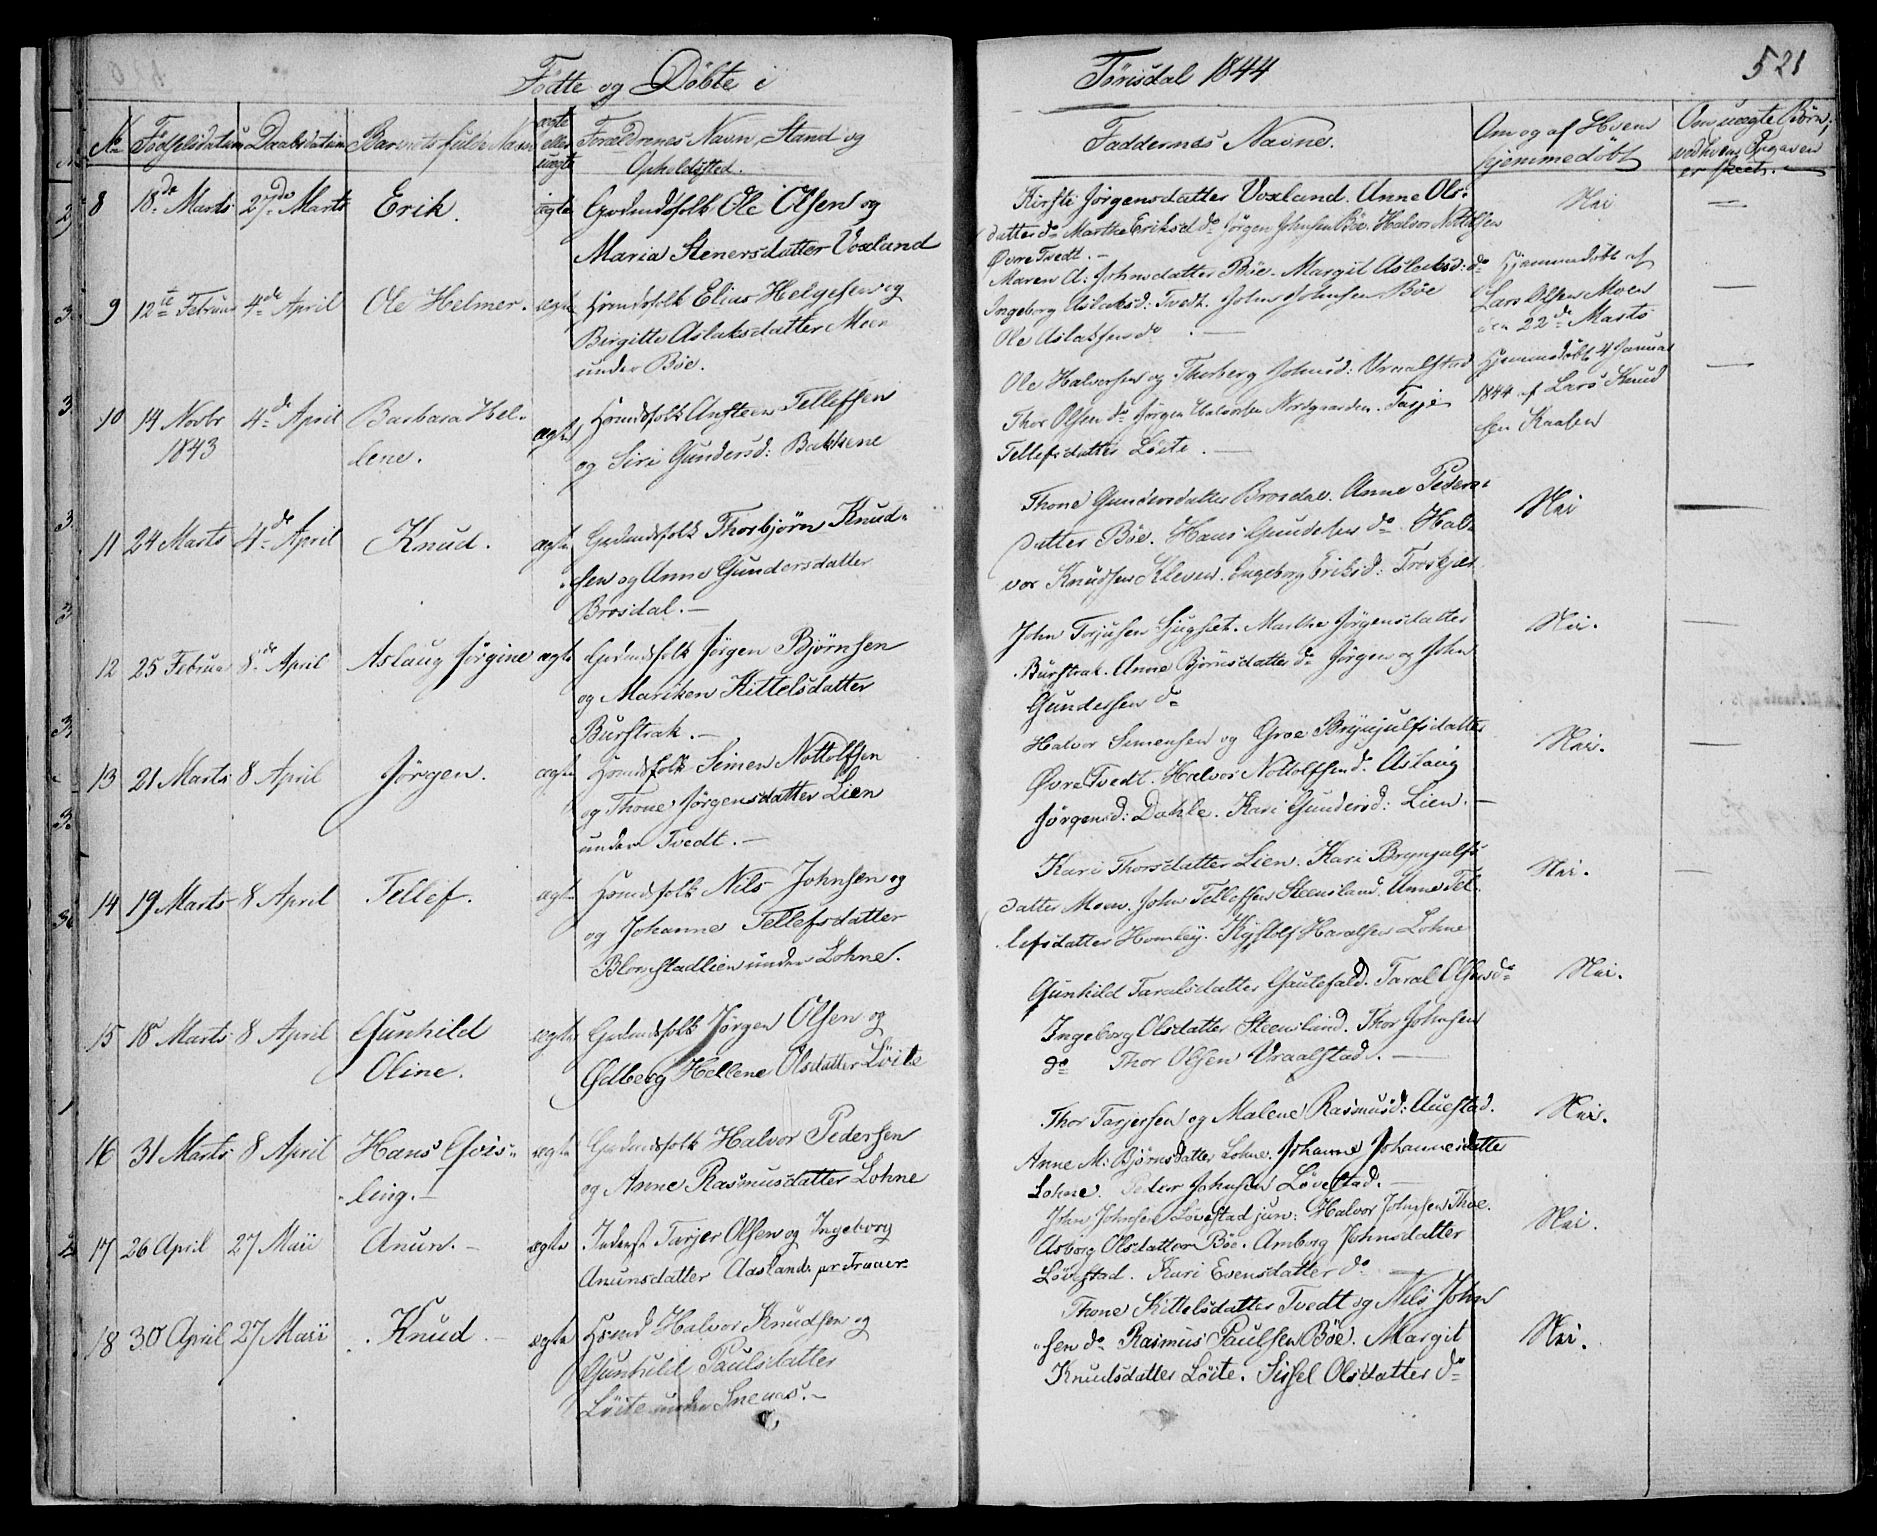 Födte og Döbte i
No Födselsdatum Daabsdatum Barnets fulde Navn ægte eller uægte Forældrenes Navn, Stand og Opholdssted.
8 18de Marts 27de Marts Erik. ægte Gaardmdsfolk Ole Olsen og
Maria Stenersdatter Voxland
9 12te Februar 4de April Ole Helmer. ægte Huusmdsfolk Elias Helgesen og
Birgitte Aslaksdatter Moen
under Böe.
10 14 Novbr 4de April Barbara Hel- ægte Huusmdsfolk Ansteen Tellefsen
1843 lene. og Siri Gundersd: Bakkene
11 24 Marts 4de April Knud. ægte Gaardmdsfolk Thorbjörn Knud-
sen og Anne Gundersdatter
Brosdal.-
12 25 Februar 8de April Aslaug Jörgine ægte Gaardmdsfolk Jörgen Björnsen
og Mariken Kittelsdatter
Burstrak.-
13 21 Marts 8 April Jörgen. ægte Huusmdsfolk Simen Nottolfsen
og Thone Jörgensdatter Lien
under Tvedt.-
14 19 Marts 8 April Tellef. ægte Huusmdsfolk Nils Johnsen og
og Johanne Tellefsdatter
Blomstadlien under Lohne.
15 18 Marts 8 April Gunhild ægte Gaardmdsfolk Jörgen Olsen og
Oline. Edberg Hellene Olsdatter Löite
16 31 Marts 8 April Hans Qvis- ægte Gaardmdsfolk Halvor Pedersen
ling.- og Anne Rasmusdatter Lohne
17 26 April 27 Maii Anun.- ægte Inderst Tarjer Olsen og Ingeborg
Anunsdatter Aasland
18 30 April 27 Maii Knud.- ægte Huusmd Halvor Knudsen og
Gunhild Paulsdatter
Löite under Snenes.-
Törisdal 1844
521
Faddernes Navne.
Om og af Hvem
hjemmedöbt
Om uægte Börn,
ved hvem Angaven
er skeet.-
Kirsti Jörgensdatter Voxland. Anne Ols-
datter do Marthe Eriksd do Jörgen Johnsen Böe. Halvor Nottolfsen
Övre Tvedt.- Nei
Maren A: Johnsdatter Böe. Margit Aslaksd: do
Ingeborg Aslaksd: Tvedt. John Johnsen Böe
Ole Aslaksen do
Hjemmedöbt af
Lars Olsen Moen
den 22de Marts
Ole Halvorsen og Thorberg Johnsd: Vraalstad
Thor Olsen do Jörgen Halvorsen Nordgaarden. Tarje
Tellefsdatter Löite.
Hjemmedöbt 4 Januar
1844 af Lars Knud
sen Kaasen
Thone Gundersdatter Brosdal. Anne Peders-
datter Böe. Hans Gundersen do. Hal-
vor Knudsen Kleven. Ingeborg Eriksd: Troskjær
Nei
John Torjusen Ljugset. Marthe Jörgensdatter
Burstrak. Anne Björnsdatter do Jörgen og John
Gundersen do
Nei.
Halvor Simensen og Groe Brynjulfsdatter
Övre Tvedt. Halvor Nottolfsen do. Aslaug
Jörgensd: Dahle. Kari Gundersd: Lien.-
Nei.
Kari Thorsdatter Lien. Kari Brynjulfs-
datter Moen. John Tellefsen Steensland. Anne Tel-
lefsdatter Homley. Kjöstolf Haralsen Lohne
Nei.
Gunhild Taralsdatter Gautefald. Taral Olsen do
Ingeborg Olsdatter Steensland. Thor Johnsen
do Thor Olsen Vraalstad.-
Nei.
Thor Tarjersen og Malene Rasmusd: Auestad.
Anne M: Björnsdatter Lohne. Johanne Johannesdatter
Lohne. Peder Johnsen Lövestad.-
Nei.
John Johnsen Lövestad jun: Halvor Johnsen Thoe.
Asborg Olsdatter Böe. Amberg Johnsdatter
Lövestad. Kari Evensdatter do
Nei.
Thone Kittelsdatter Tvedt og Nils John
sen do Rasmus Paulsen Böe. Margit
Knudsdatter Löite. Sissel Olsdatter do
Nei.